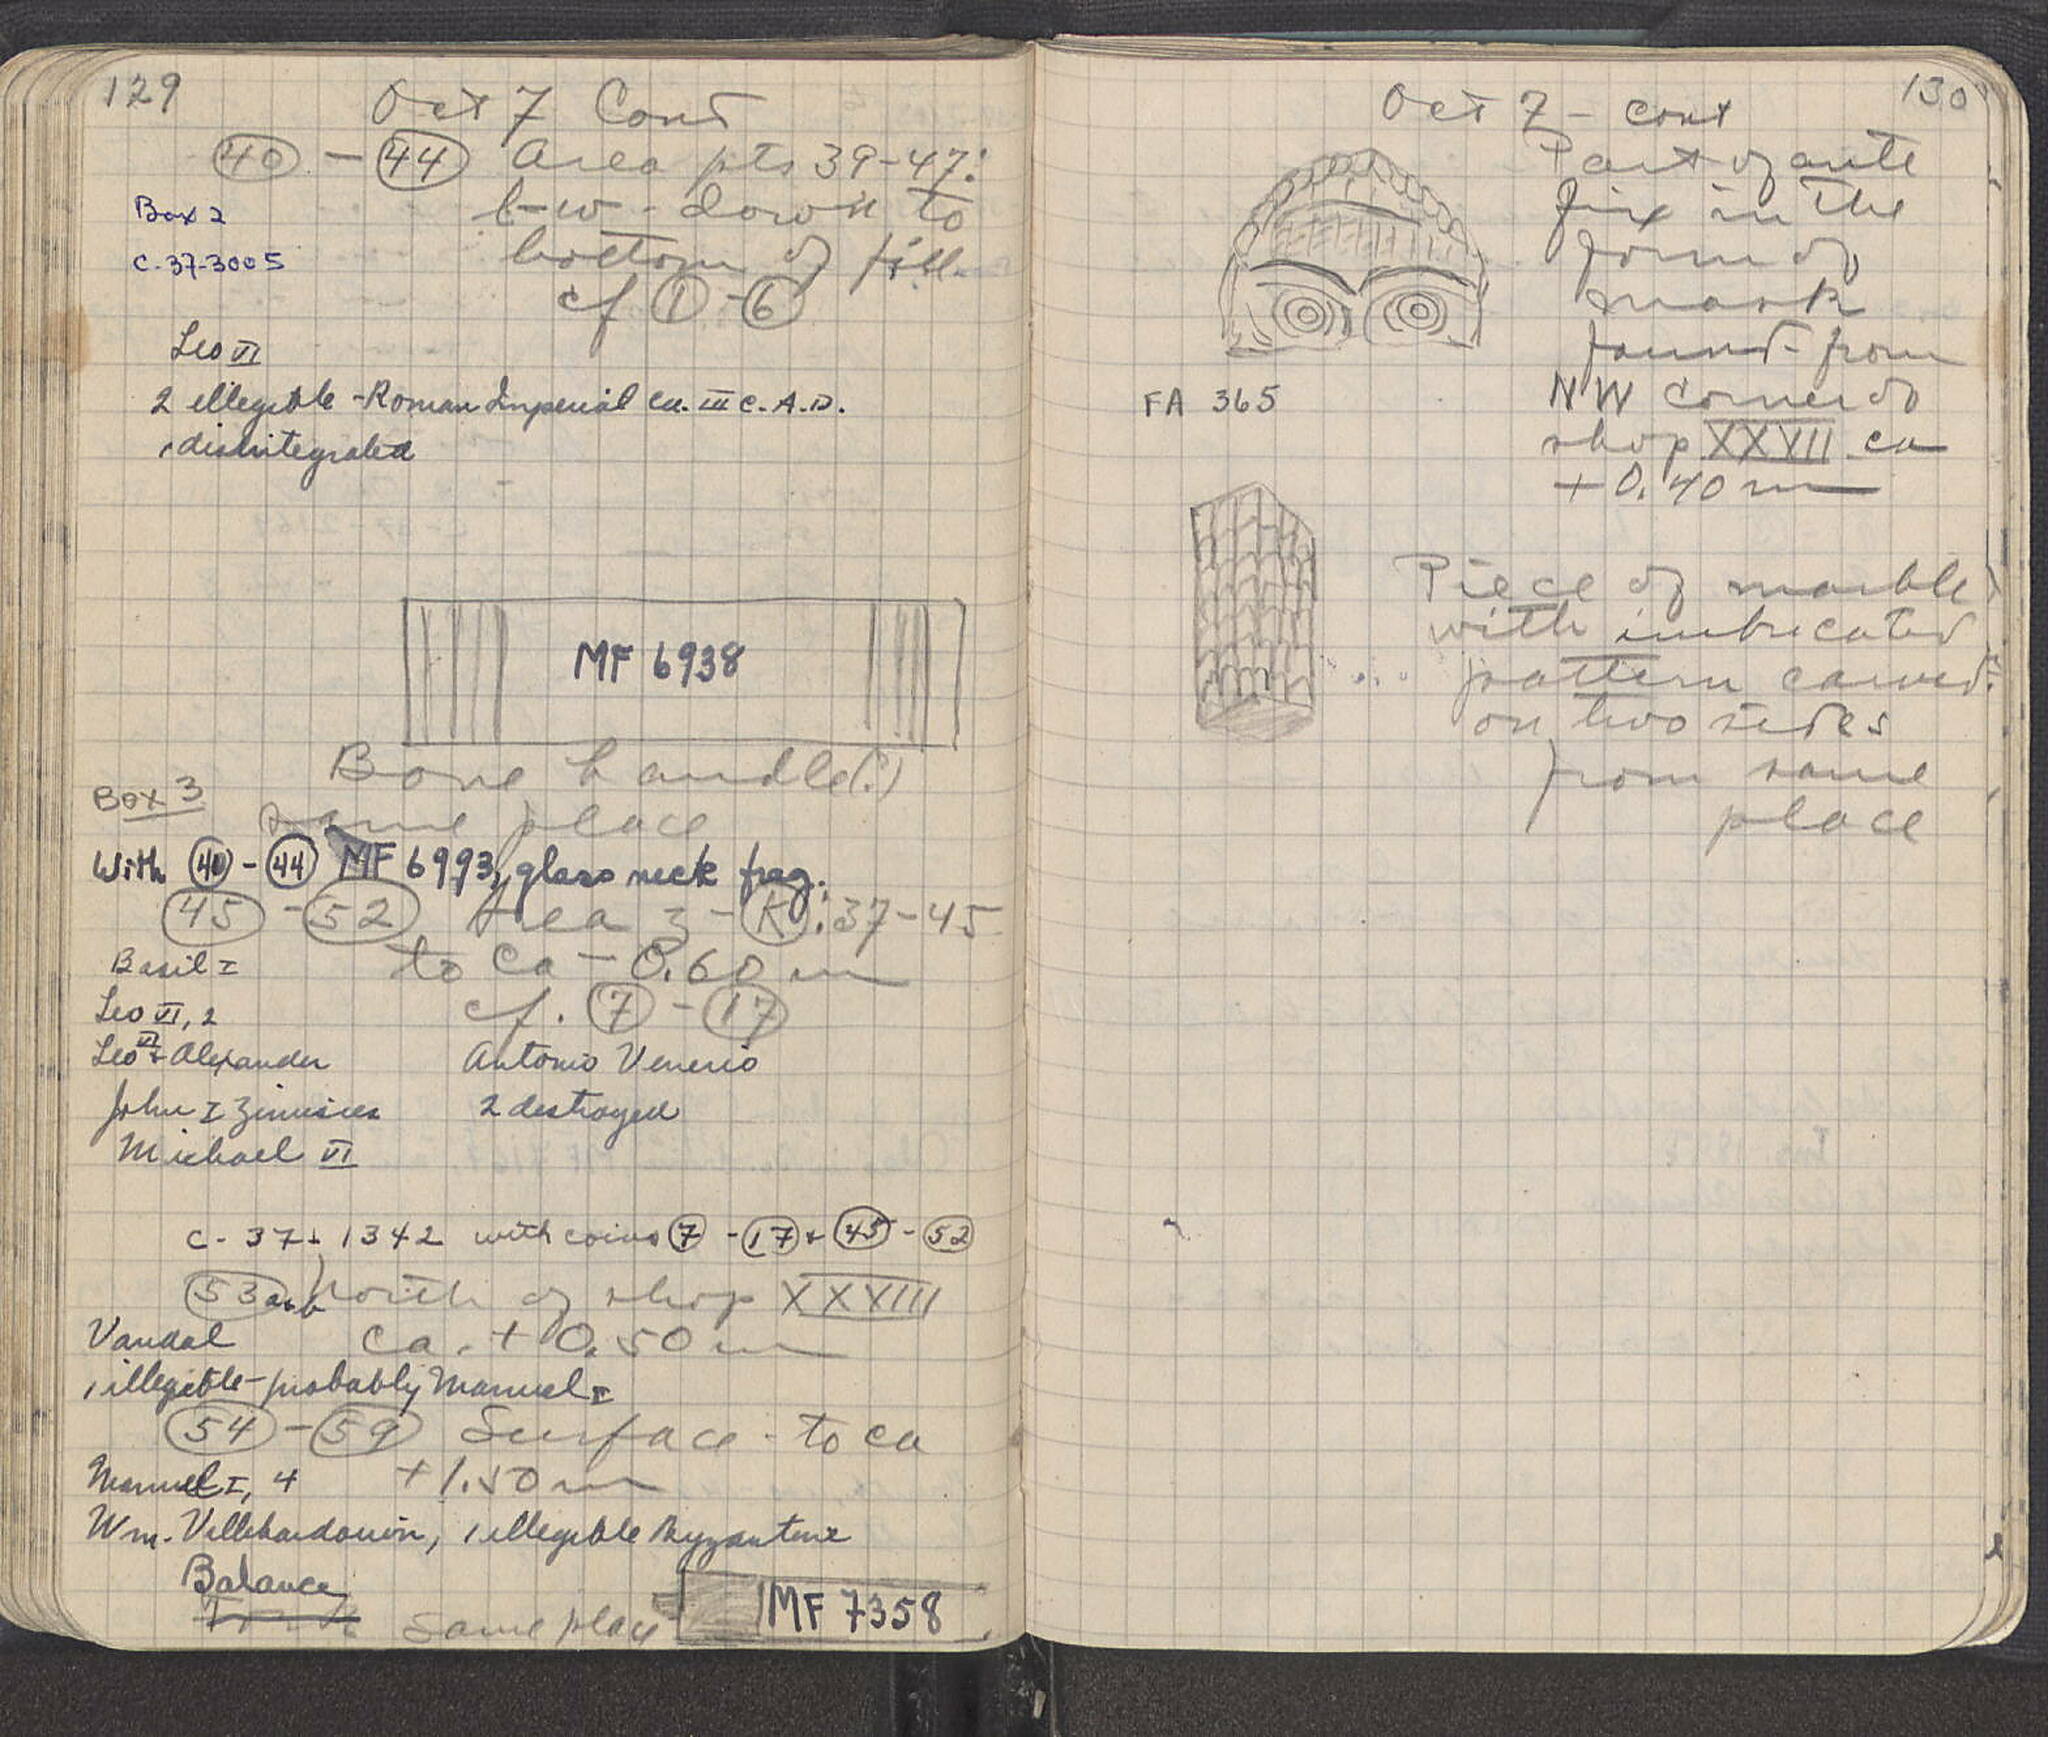 129
Oct 7 Cont
40 - 44 Area pts 39-47:
Box 2
l-w - down to
C-37-3005
bottom of fill.
cf 1 - 6
Leo VI
2 illegible - Roman Imperial ca. III C. A.D.
1 disintegrated
MF 6938
Bone handle(?)
Box 3
same place
With 40 - 44 MF 6993, glass neck frag.
45 - 52 Area z - K: 37-45
Basil I
to ca - 0.60 m
Leo VI, 2
cf. 7 - 17
Leo VI + Alexander
Antonio Venerio
John I Zimisces
2 destroyed
Michael VI
C-37-1342 with coins 7 - 17 + 45 - 52
53 a+b North of shop XXXVIII
Vandal
ca. + 0.50 m
1 illegible - probably Manuel I
54 - 59 Surface - to ca
Manuel I, 4
+ 1.50 m
Wm. Villehardouin, 1 illegible Byzantine
Balance
same place
MF 7358
130
Oct 7 - cont
Part of ante
fix in the
form of
mask
found - from
NW corner of
FA 365
shop XXXVII ca
+ 0.40 m
Piece of marble
with imbricated
pattern carved
on two sides
from same
place